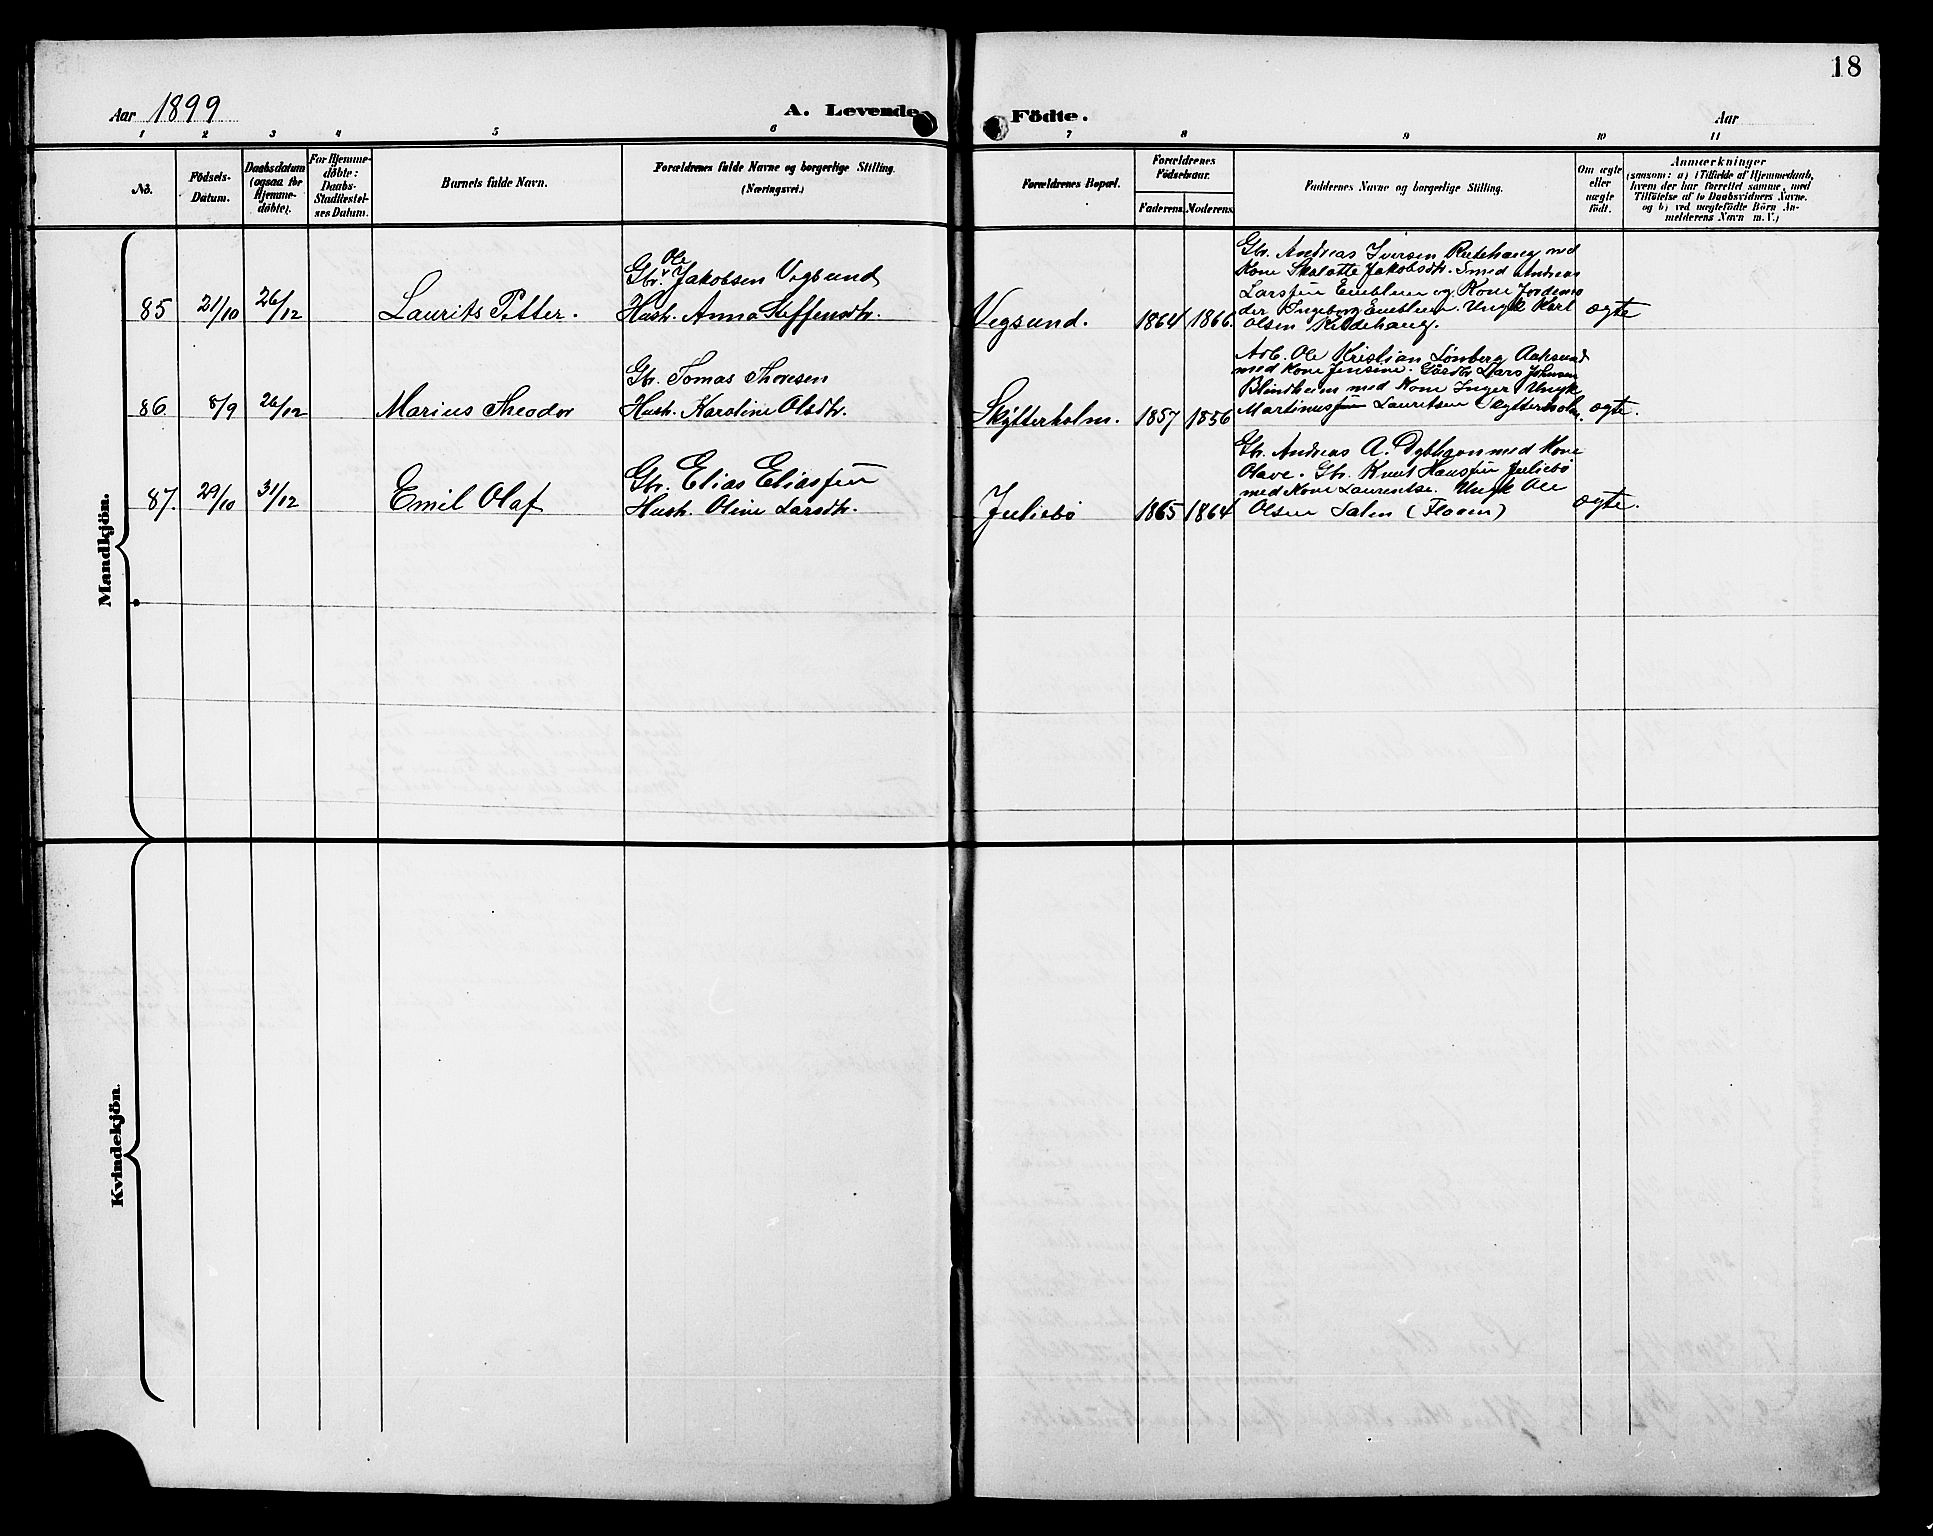 18
Aar 1899
A. Levende Födte.
Aar
1 2 3 4 5 6 7 8 9 10 11
No.
Födsels-
Datum.
Daabsdatum
(ogsaa for
Hjemme-
døbte).
For Hjemme-
döbte:
Daabs-
Stadfæstel-
ses Datum.
Barnets fulde Navn.
Forældrenes fulde Navne og borgerlige Stilling.
(Næringsvei.)
Forældrenes Bopæl.
Forældrenes
Födselsaar.
Faderens. Moderens.
Faddernes Navne og borgerlige Stilling.
Om ægte
eller
uægte
født.
Anmærkninger
(saasom: a) i Tilfælde af Hjemmedaab,
hvem der har forrettet samme, med
Tilföielse af to Daabsvidners Navne,
og b) ved uægtefödte Börn An-
melderens Navn m. V.)
Mandkjön.
85 21/10 26/12 Laurits Petter.
Gbr. Ole Jakobsen Vegsund
Hust. Anna Steffensdtr.
Vegsund. 1864 1866.
Gbr. Andreas Iversen Rødehaug med
Kone Skalotte Jakobsdtr. Smed Andreas
Larssen Emblem og Kone Jordemo
der Ingeborg Emblem. Ungk Karl
Olsen
ægte
86 8/9 26/12 Marius Theodor
Gbr. Tomas Thoresen
Hust. Karoline Olsdtr.
Skytterholm. 1857 1856
Arb. Ole Kristian Lønberg Aahsund
med Kone Jensine. Gårdbr Lars Johnsen
Blindheim med Kone Inger Ungk
Martinus Lauritsen Skytterholm.
ægte.
87. 29/10 31/12 Emil Olaf
Gbr. Elias Eliassen
Hust. Oline Larsdtr.
Juliebø 1865 1864
Gbr. Andreas A. Dybhavn med Kone
Olave. Gbr. Knut Hanssen Juliebø
med Kone Laurentse. Ungk Ole
Olsen Salen (Floven)
ægte.
Kvindekjön.